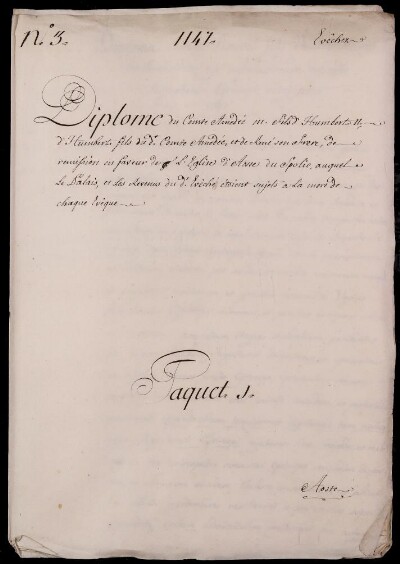 N.º 3. 1147. Evêchez
Diplome du Comte Amedé III. Fils d'Humbert II,
d'Humbert fils du d.t Comte Amedée, et de Amé son frere, de
remission en faveur de L'Eglise d'Aoste du Spolie, auquel
Le Palais, et les Revenus du d.t Evêché, étoient sujets a La mort de
chaque Evêque.
Paquet 1.
Aoste